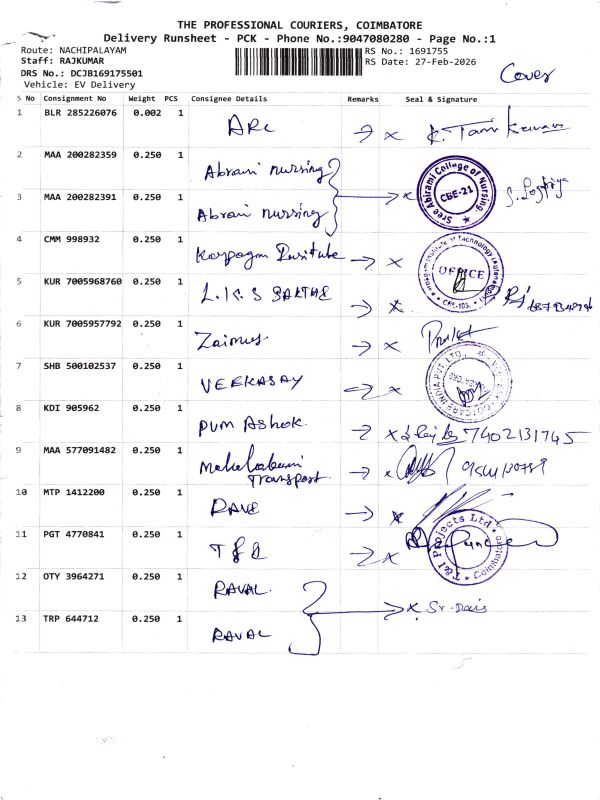 THE PROFESSIONAL COURIERS, COIMBATORE
Delivery Runsheet - PCK - Phone No.:9047080280 - Page No.:1
Route: NACHIPALAYAM
Staff: RAJKUMAR
DRS No.: DCJB169175501
Vehicle: EV Delivery
RS No.: 1691755
RS Date: 27-Feb-2026
Cover
S No Consignment No Weight PCS Consignee Details Remarks Seal & Signature
1 BLR 285226076 0.002 1 ARC
2 MAA 200282359 0.250 1 Abrami nursing
3 MAA 200282391 0.250 1 Abrami nursing
Sree Abirami College of Nursing
CBE-21
4 CMM 998932 0.250 1 Karpagam Institute
OFFICE
5 KUR 7005968760 0.250 1 L.K.S
6 KUR 7005957792 0.250 1 Zaimus
7 SHB 500102537 0.250 1 VEEKASAY
8 KDI 905962 0.250 1 PUM Ashok
7402131745
9 MAA 577091482 0.250 1 Transport
10 MTP 1412200 0.250 1
11 PGT 4770841 0.250 1
T&I Projects Ltd
Coimbatore
12 OTY 3964271 0.250 1 RAVAL
13 TRP 644712 0.250 1 RAVAL